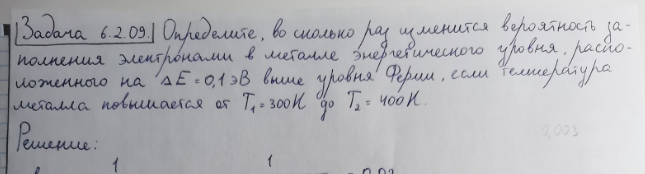 Задача 6.2.09. Определите, во сколько раз изменится вероятность за-
полнения электронами в металле энергетического уровня, распо-
ложенного на ΔE = 0,1 эВ выше уровня Ферми, если температура
металла повышается от T₁ = 300К до T₂ = 400К.
0,003
Решение:
1 1